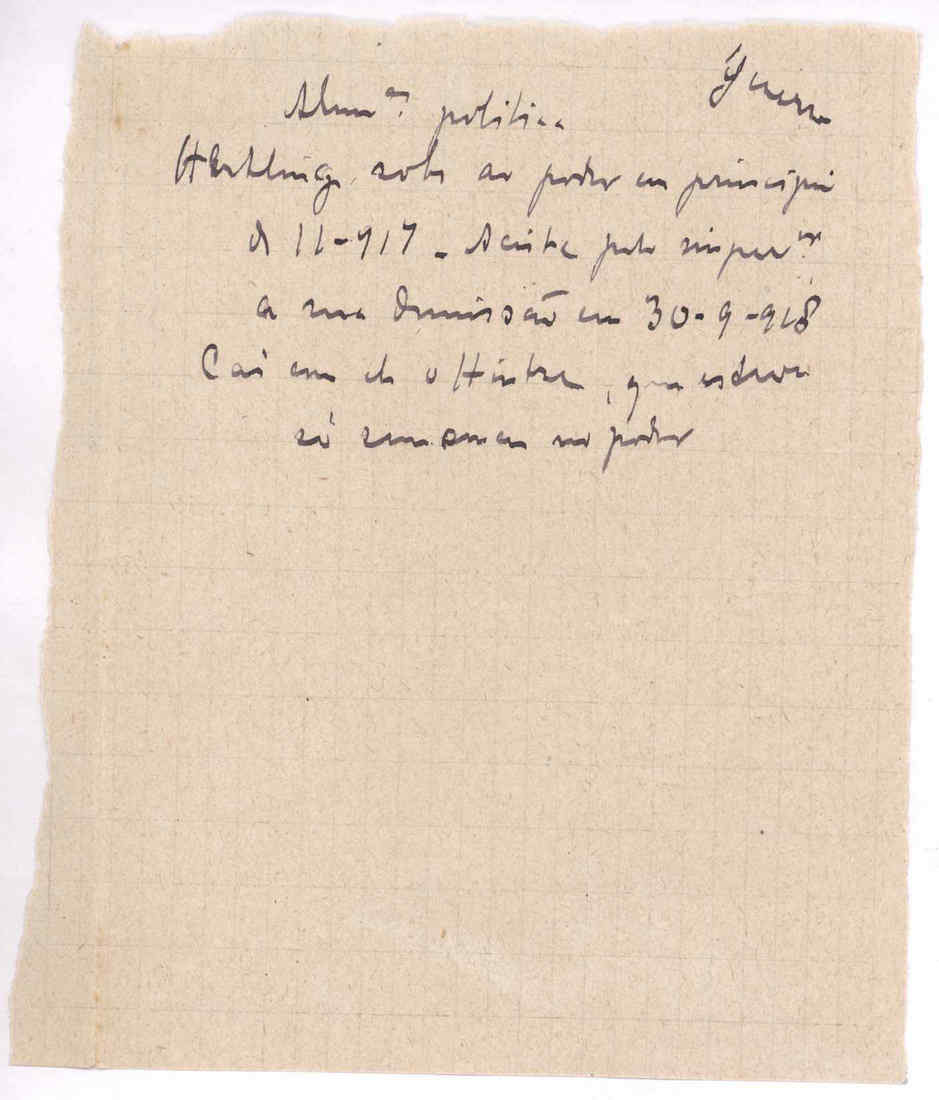 Guerra
Alem.ª politica
Hertling, sobe ao poder em principio
de 11-917 - Aceite pelo imper.or
a sua demissão em 30-9-918
Cai com ele o Hintze, que estava
só semanas no poder